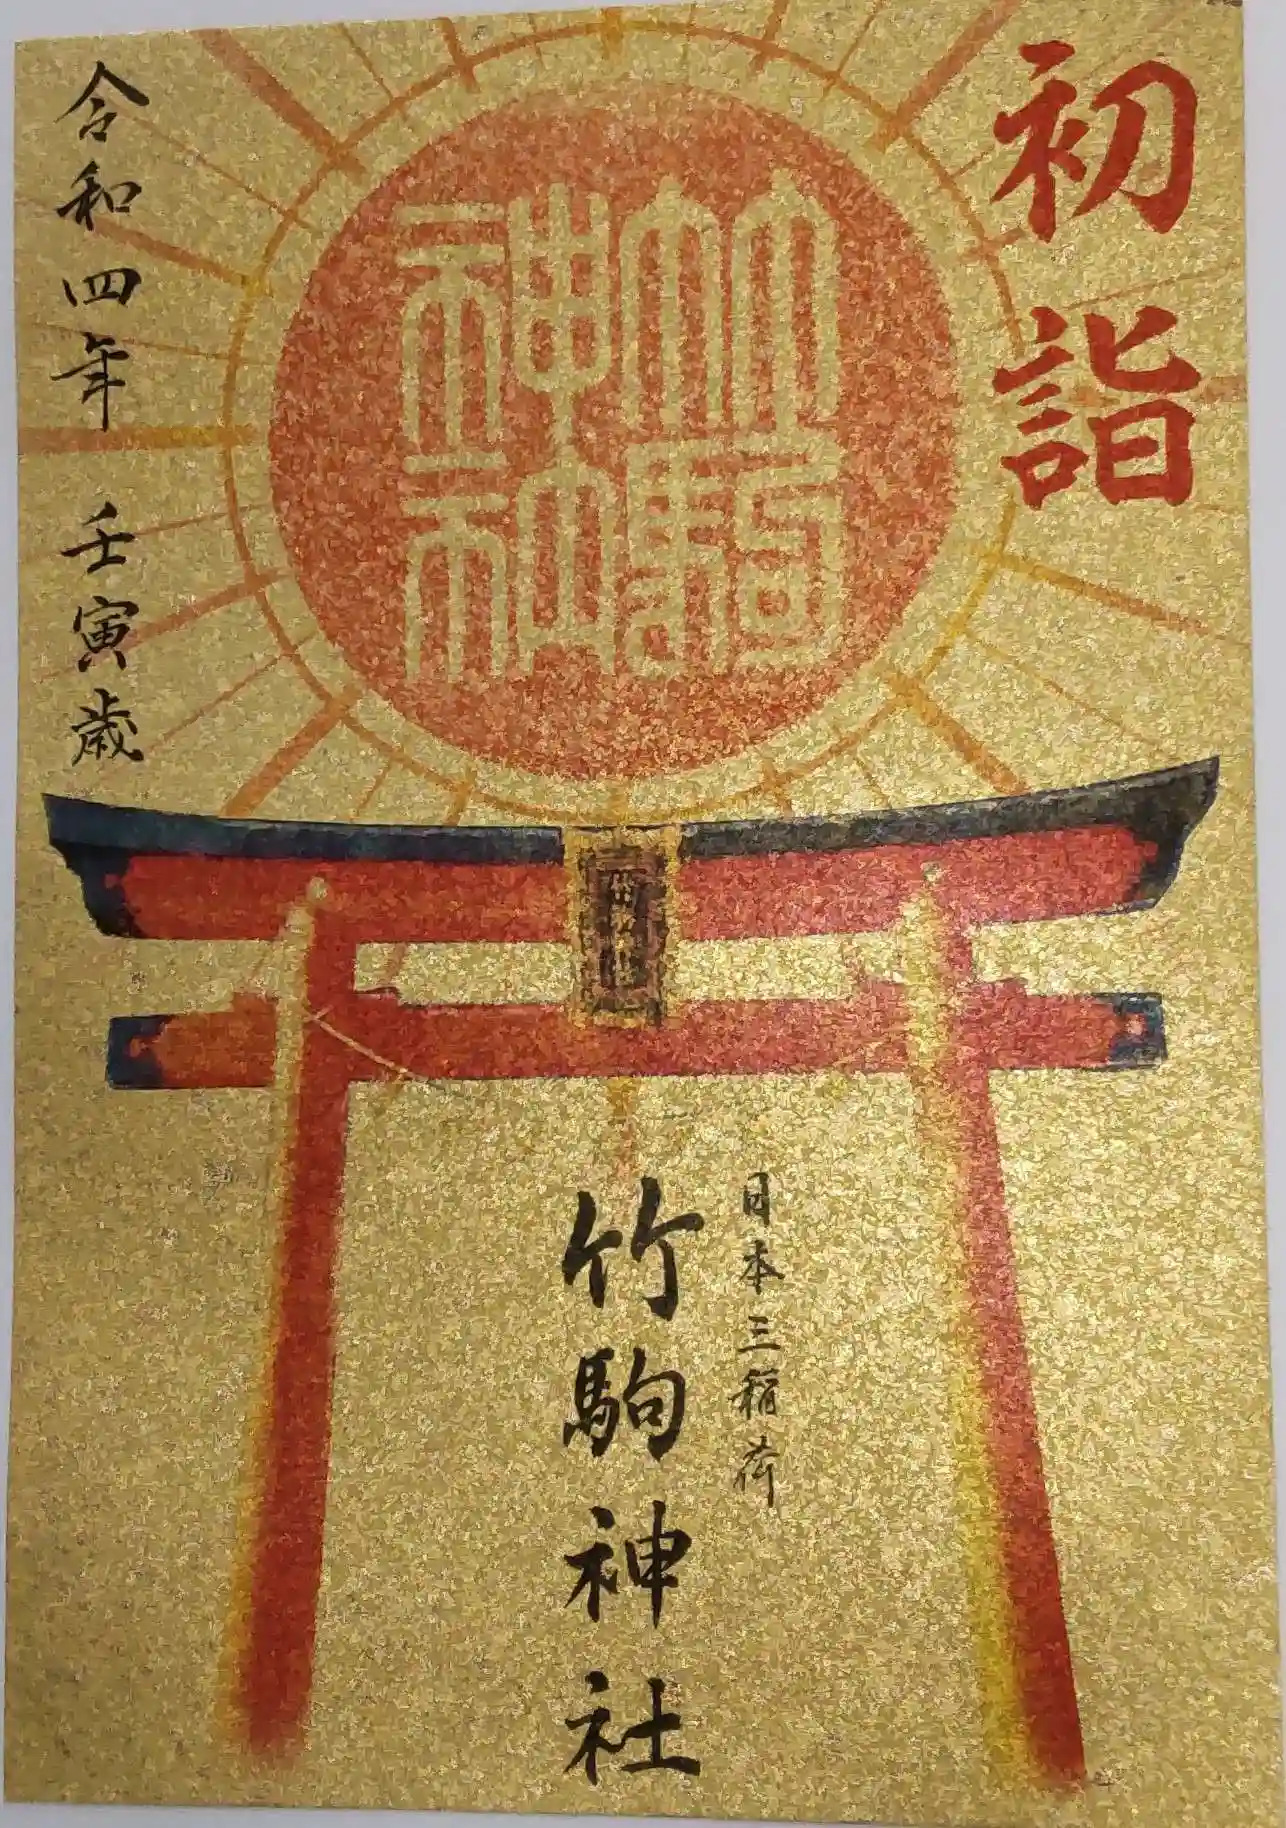 初詣
竹駒
神社
日本三稲荷
竹駒神社
令和四年 壬寅歳